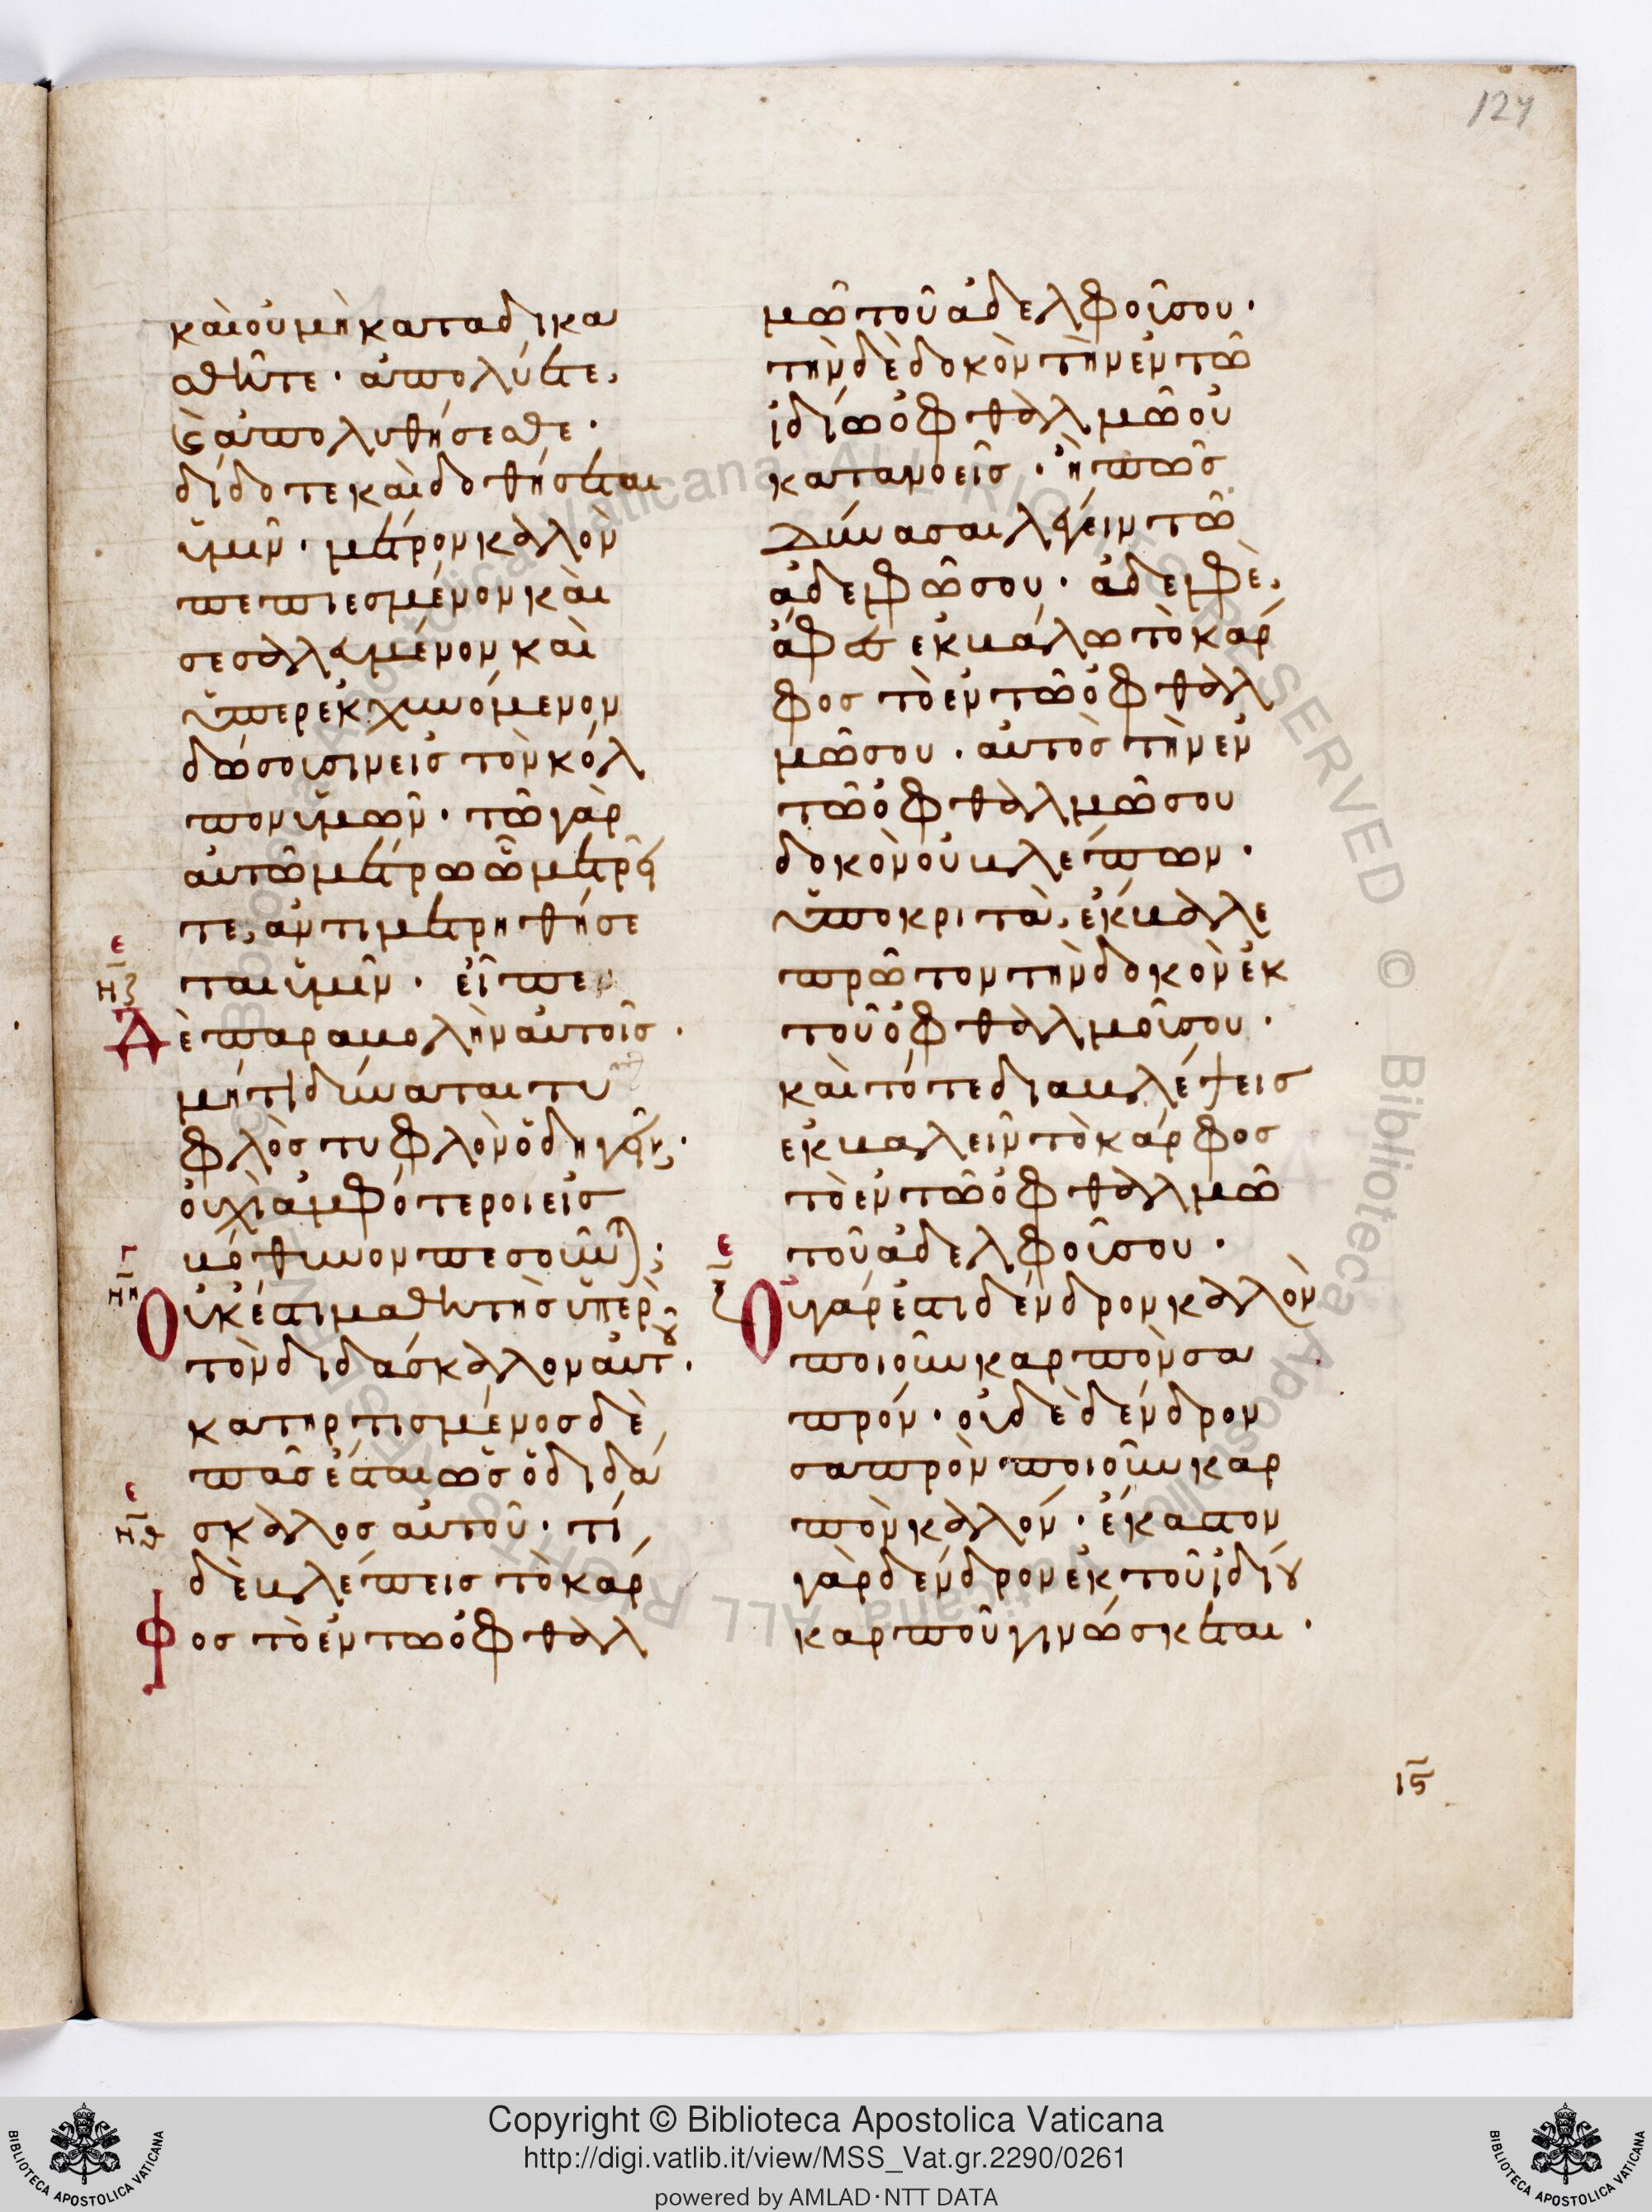 124
καὶ οὐ μὴ καταδικα
σθῆτε· ἀπολύετε,
καὶ ἀπολυθήσεσθε·
δίδοτε καὶ δοθήσεται
ὑμῖν· μέτρον καλὸν
πεπιεσμένον καὶ
σεσαλλαγμένον καὶ
ὑπερεκχυνόμενον
δώσουσιν εἰς τὸν κόλ
πον ὑμῶν· τῶ γὰρ
αὐτῶ μέτρω ὧ μετρεῖ
τε, ἀντιμετρηθήσε
ε
ΝΖ
ται ὑμῖν· εἶπε
Δὲ παραβολὴν αὐτοῖς·
μήτι δύναται τυ
φλὸς τυφλὸν ὁδηγεῖν;
οὐχὶ ἀμφότεροι εἰς
βόθυνον πεσοῦνται;
Γ
ΝΗ
Οὐκ ἔστι μαθητὴς ὑπὲρ
τὸν διδάσκαλον αὐτοῦ·
κατηρτισμένος δὲ
πᾶς ἔσται ὡς ὁ διδά
ε
ΝΘ
σκαλος αὐτοῦ· τί
δὲ βλέπεις τὸ κάρ
Φος τὸ ἐν τῶ ὀφθαλ
μῶ τοῦ ἀδελφοῦ σου·
τὴν δὲ δοκὸν τὴν ἐν τῶ
ἰδίω ὀφθαλμῶ οὐ
κατανοεῖς· ἢ πῶς
δύνασαι λέγειν τῶ
ἀδελφῶ σου· ἀδελφὲ,
ἄφες ἐκβάλω τὸ κάρ
φος τὸ ἐν τῶ ὀφθαλ
μῶ σου· αὐτὸς τὴν ἐν
τῶ ὀφθαλμῶ σου
δοκὸν οὐ βλέπων·
ὑποκριτὰ, ἔκβαλε
πρῶτον τὴν δοκὸν ἐκ
τοῦ ὀφθαλμοῦ σου·
καὶ τότε διαβλέψεις
ἐκβαλεῖν τὸ κάρφος
τὸ ἐν τῶ ὀφθαλμῶ
τοῦ ἀδελφοῦ σου·
ε
ξ
Οὐ γάρ ἐστι δένδρον καλὸν
ποιοῦν καρπὸν σα
πρόν· οὐδὲ δένδρον
σαπρὸν ποιοῦν καρ
πὸν καλόν· ἕκαστον
γὰρ δένδρον ἐκ τοῦ ἰδίου
καρποῦ γινώσκεται·
ις
Copyright © Biblioteca Apostolica Vaticana
http://digi.vatlib.it/view/MSS_Vat.gr.2290/0261
powered by AMLAD·NTT DATA